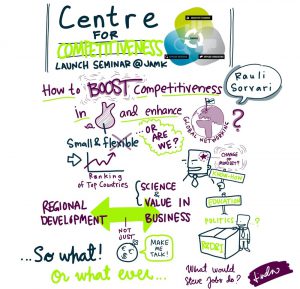 Centre
FOR
COMPETITIVENESS
LAUNCH SEMINAR @ JAMK
Rauli
Sorvari
How to BOOST Competitiveness
In and enhance
GLOBAL NETWORKING
?
Small & flexible
...OR
ARE
WE?
CHANGE
OF
MINDSET?
KNOW-HOW
Ranking
of Top Countries
EDUCATION
SCIENCE
&
VALUE IN
BUSINESS
REGIONAL
DEVELOPMENT
POLITICS
?
NOT
JUST
MAKE
ME
TALK!
...So what!
Or what ever...
What would
Steve Jobs do?